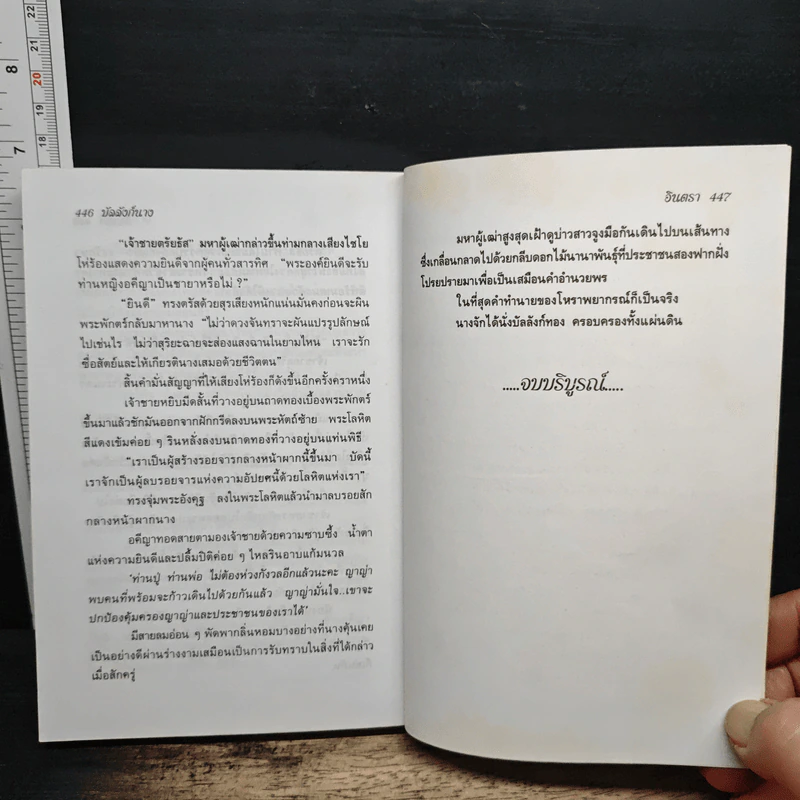 22
21
20
19
18
8
7
446 บัลลังก์นาง
“เจ้าชายตรัยธัส” มหาผู้เฒ่ากล่าวขึ้นท่ามกลางเสียงไชโย
โห่ร้องแสดงความยินดีจากผู้คนทั่วสารทิศ “พระองค์ยินดีจะรับ
ท่านหญิงอคีญาเป็นชายาหรือไม่ ?”
“ยินดี” ทรงตรัสด้วยสุรเสียงหนักแน่นมั่นคงก่อนจะผิน
พระพักตร์กลับมาหานาง “ไม่ว่าดวงจันทราจะผันแปรรูปลักษณ์
ไปเช่นไร ไม่ว่าสุริยะฉายจะส่องแสงฉานในยามไหน เราจะรัก
ซื่อสัตย์และให้เกียรตินางเสมอด้วยชีวิตตน”
สิ้นคำมั่นสัญญาที่ให้เสียงโห่ร้องก็ดังขึ้นอีกครั้งคราหนึ่ง
เจ้าชายหยิบมีดสั้นที่วางอยู่บนถาดทองเบื้องพระพักตร์
ขึ้นมาแล้วชักมันออกจากฝักกรีดลงบนพระหัตถ์ซ้าย พระโลหิต
สีแดงเข้มค่อย ๆ รินหลั่งลงบนถาดทองที่วางอยู่บนแท่นพิธี
“เราเป็นผู้สร้างรอยจารกลางหน้าผากนี้ขึ้นมา บัดนี้
เราจักเป็นผู้ลบรอยจารแห่งความอัปยศนี้ด้วยโลหิตแห่งเรา”
ทรงจุ่มพระอังคุฐ ลงในพระโลหิตแล้วนำมาลบรอยสัก
กลางหน้าผากนาง
อคีญาทอดสายตามองเจ้าชายด้วยความซาบซึ้ง น้ำตา
แห่งความยินดีและปลื้มปิติค่อย ๆ ไหลรินอาบแก้มนวล
‘ท่านปู่ ท่านพ่อ ไม่ต้องห่วงกังวลอีกแล้วนะคะ ญาญ่า
พบคนที่พร้อมจะก้าวเดินไปด้วยกันแล้ว ญาญ่ามั่นใจ..เขาจะ
ปกป้องคุ้มครองญาญ่าและประชาชนของเราได้’
มีสายลมอ่อน ๆ พัดพากลิ่นหอมบางอย่างที่นางคุ้นเคย
เป็นอย่างดีผ่านร่างงามเสมือนเป็นการรับทราบในสิ่งที่ได้กล่าว
เมื่อสักครู่
อินตรา 447
มหาผู้เฒ่าสูงสุดเฝ้าดูบ่าวสาวจูงมือกันเดินไปบนเส้นทาง
ซึ่งเกลื่อนกลาดไปด้วยกลีบดอกไม้นานาพันธุ์ที่ประชาชนสองฟากฝั่ง
โปรยปรายมาเพื่อเป็นเสมือนคำอำนวยพร
ในที่สุดคำทำนายของโหราพยากรณ์ก็เป็นจริง
นางจักได้นั่งบัลลังก์ทอง ครอบครองทั้งแผ่นดิน
.....จบบริบูรณ์.....